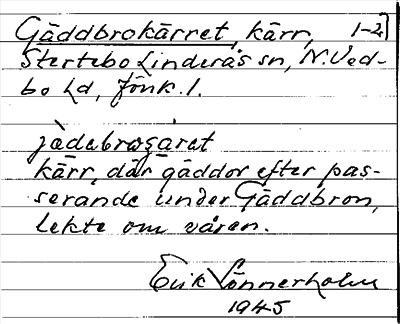 Gäddbrokärret, kärr, 1-2]
Stertebo Linderås sn, N. Ved-
bo hd, Jönk. l.
jädebrosäret
kärr, där gäddor efter pas-
serande under Gäddbron,
lekte om våren.
Erik Lönnerholm
1945